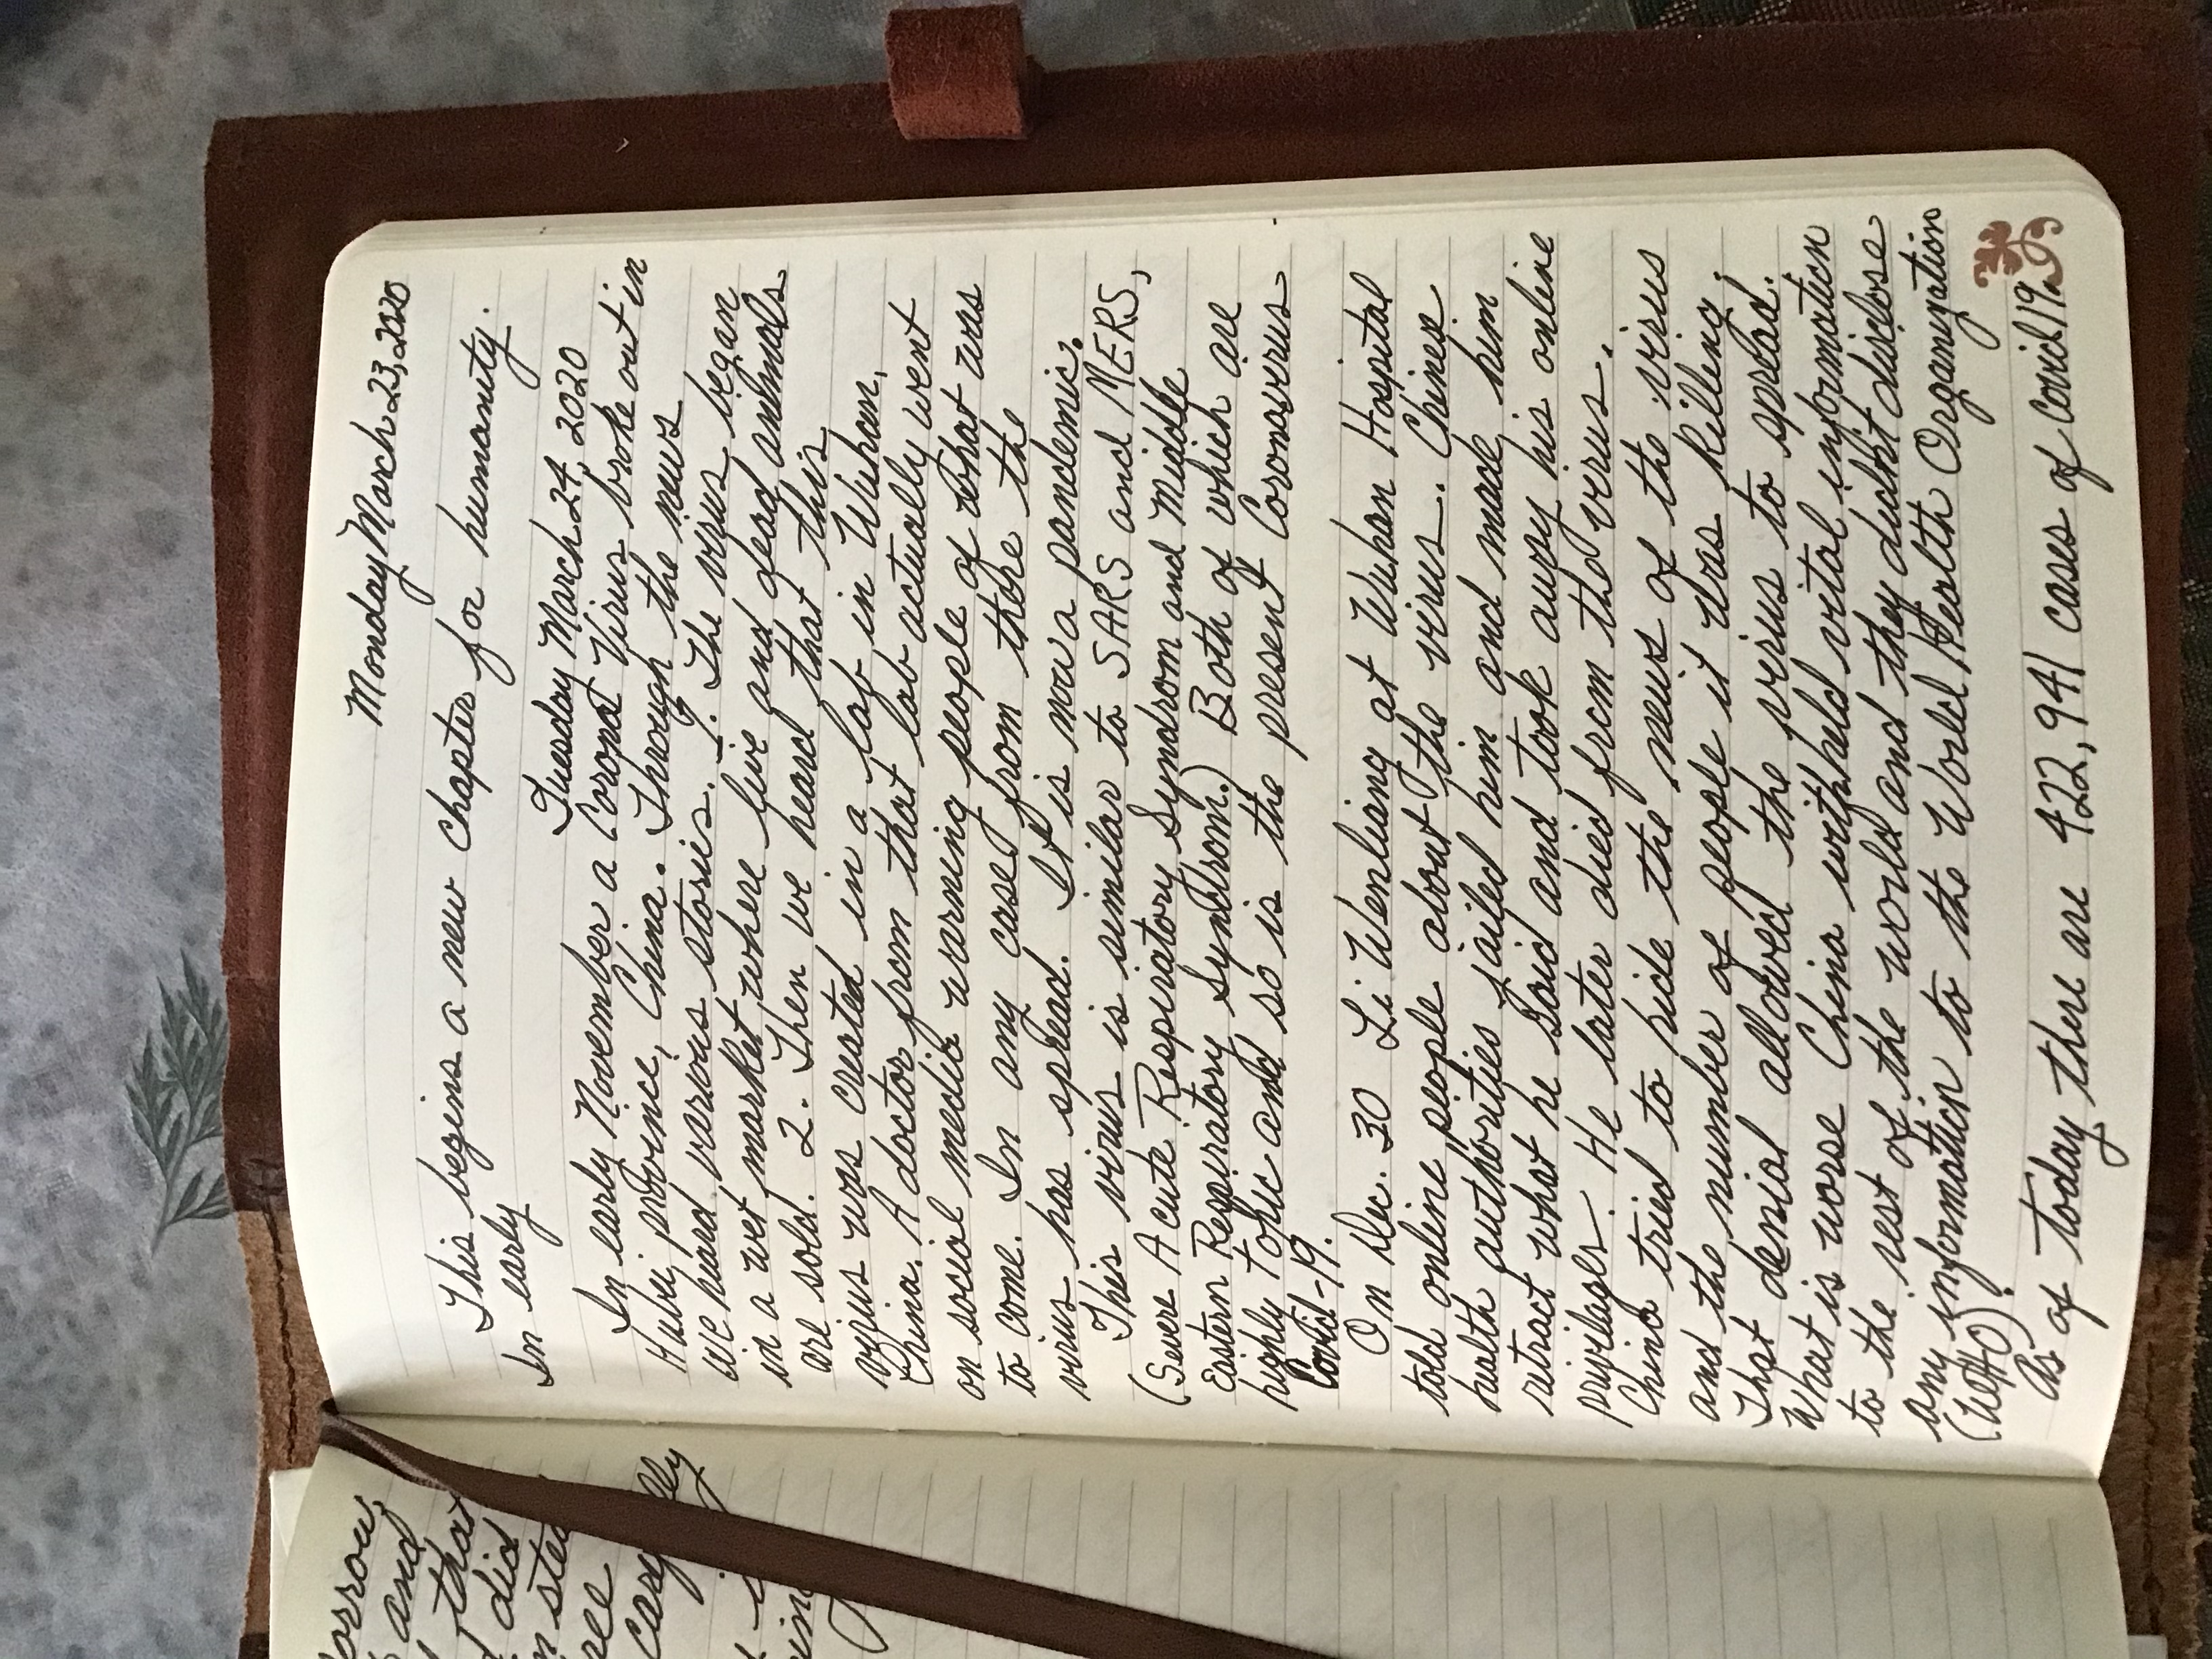 Monday March 23, 2020
This begins a new chapter for humanity.
In early
Tuesday March 24, 2020
In early November a Corona Virus broke out in
Hubei province, China. Through the news
we heard various stories. 1. The virus began
in a wet market where live and dead animals
are sold. 2. Then we heard that this
virus was created in a lab in Wuhan,
China. A doctor from that lab actually went
on social media warning people of what was
to come. In any case from there the
virus has spread. It is now a pandemic.
This virus is similar to SARS and MERS,
(Severe Acute Respiratory Syndrom and Middle
Eastern Respiratory Syndrom.) Both of which are
highly toxic and so is the present Coronavirus
Covid-19.
On Dec. 30 Li Wenliang at Wuhan Hospital
told online people about the virus. Chinese
health authorities jailed him and made him
retract what he said and took away his online
privilages. He later died from the virus.
China tried to hide the news of the virus
and the number of people it was killing.
That denial allowed the virus to spread.
What is worse China withheld vital information
to the rest of the world and they didn't disclose
any information to the World Health Organization
(WHO).
As of today there are 422,941 cases of Covid 19.
orrow,
and
that
did
ste
ree